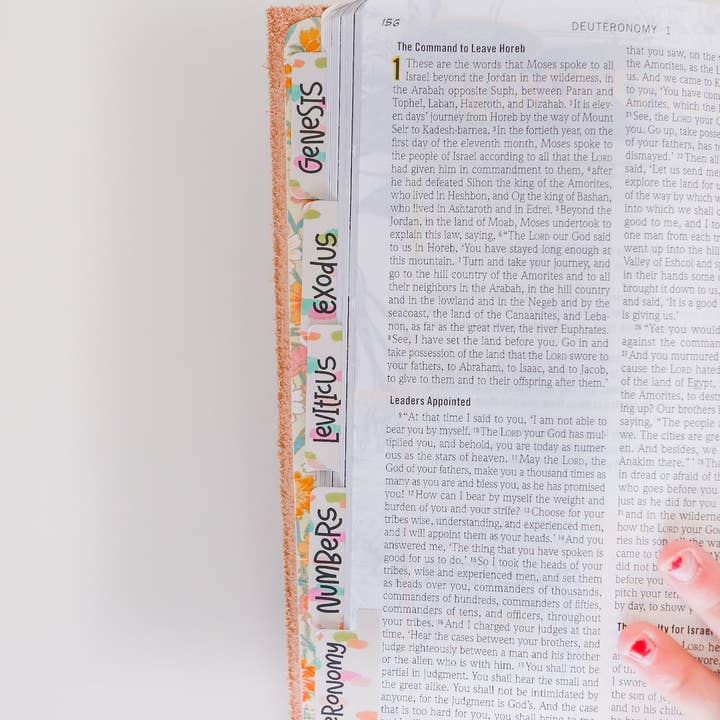 156
DEUTERONOMY 1
GENESIS
EXODUS
LEVITICUS
NUMBERS
ERONOMY
The Command to Leave Horeb
1 These are the words that Moses spoke to all
Israel beyond the Jordan in the wilderness, in
the Arabah opposite Suph, between Paran and
Tophel, Laban, Hazeroth, and Dizahab. 2 It is elev-
en days' journey from Horeb by the way of Mount
Seir to Kadesh-barnea. 3 In the fortieth year, on the
first day of the eleventh month, Moses spoke to
the people of Israel according to all that the LORD
had given him in commandment to them, 4 after
he had defeated Sihon the king of the Amorites,
who lived in Heshbon, and Og the king of Bashan,
who lived in Ashtaroth and in Edrei. 5 Beyond the
Jordan, in the land of Moab, Moses undertook to
explain this law, saying, 6 "The LORD our God said
to us in Horeb, 'You have stayed long enough at
this mountain. 7 Turn and take your journey, and
go to the hill country of the Amorites and to all
their neighbors in the Arabah, in the hill country
and in the lowland and in the Negeb and by the
seacoast, the land of the Canaanites, and Leba-
non, as far as the great river, the river Euphrates.
8 See, I have set the land before you. Go in and
take possession of the land that the LORD swore to
your fathers, to Abraham, to Isaac, and to Jacob,
to give to them and to their offspring after them.'
Leaders Appointed
9 "At that time I said to you, 'I am not able to
bear you by myself. 10 The LORD your God has mul-
tiplied you, and behold, you are today as numer-
ous as the stars of heaven. 11 May the LORD, the
God of your fathers, make you a thousand times as
many as you are and bless you, as he has promised
you! 12 How can I bear by myself the weight and
burden of you and your strife? 13 Choose for your
tribes wise, understanding, and experienced men,
and I will appoint them as your heads.' 14 And you
answered me, 'The thing that you have spoken is
good for us to do.' 15 So I took the heads of your
tribes, wise and experienced men, and set them
as heads over you, commanders of thousands,
commanders of hundreds, commanders of fifties,
commanders of tens, and officers, throughout
your tribes. 16 And I charged your judges at that
time, 'Hear the cases between your brothers, and
judge righteously between a man and his brother
or the alien who is with him. 17 You shall not be
partial in judgment. You shall hear the small and
the great alike. You shall not be intimidated by
anyone, for the judgment is God's. And the case
that is too hard for you, you shall bring to
that you saw, on the
the Amorites, as the L
us. And we came to K
to you, 'You have com
Amorites, which the
21 See, the LORD your G
you. Go up, take posse
of your fathers, has to
dismayed.' 22 Then all
said, 'Let us send me
explore the land for
of the way by which w
into which we shall
good to me, and I to
one man from each tr
went up into the hill
Valley of Eshcol and s
in their hands some
brought it down to us,
and said, 'It is a good
is giving us.'
26 "Yet you would
against the comman
27 And you murmured
cause the LORD hated
of the land of Egypt,
the Amorites, to destr
ing up? Our brothers
saying, "The people
we. The cities are gre
en. And besides, we
Anakim there." ' 29 Th
in dread or afraid of
who goes before you
just as he did for you
31 and in the wilderne
how the LORD your Go
ries his son, all the wa
came to
did not b
before you
pitch your ten
by day, to show
The for Israel
LORD he
I swore
the son of
and to his child